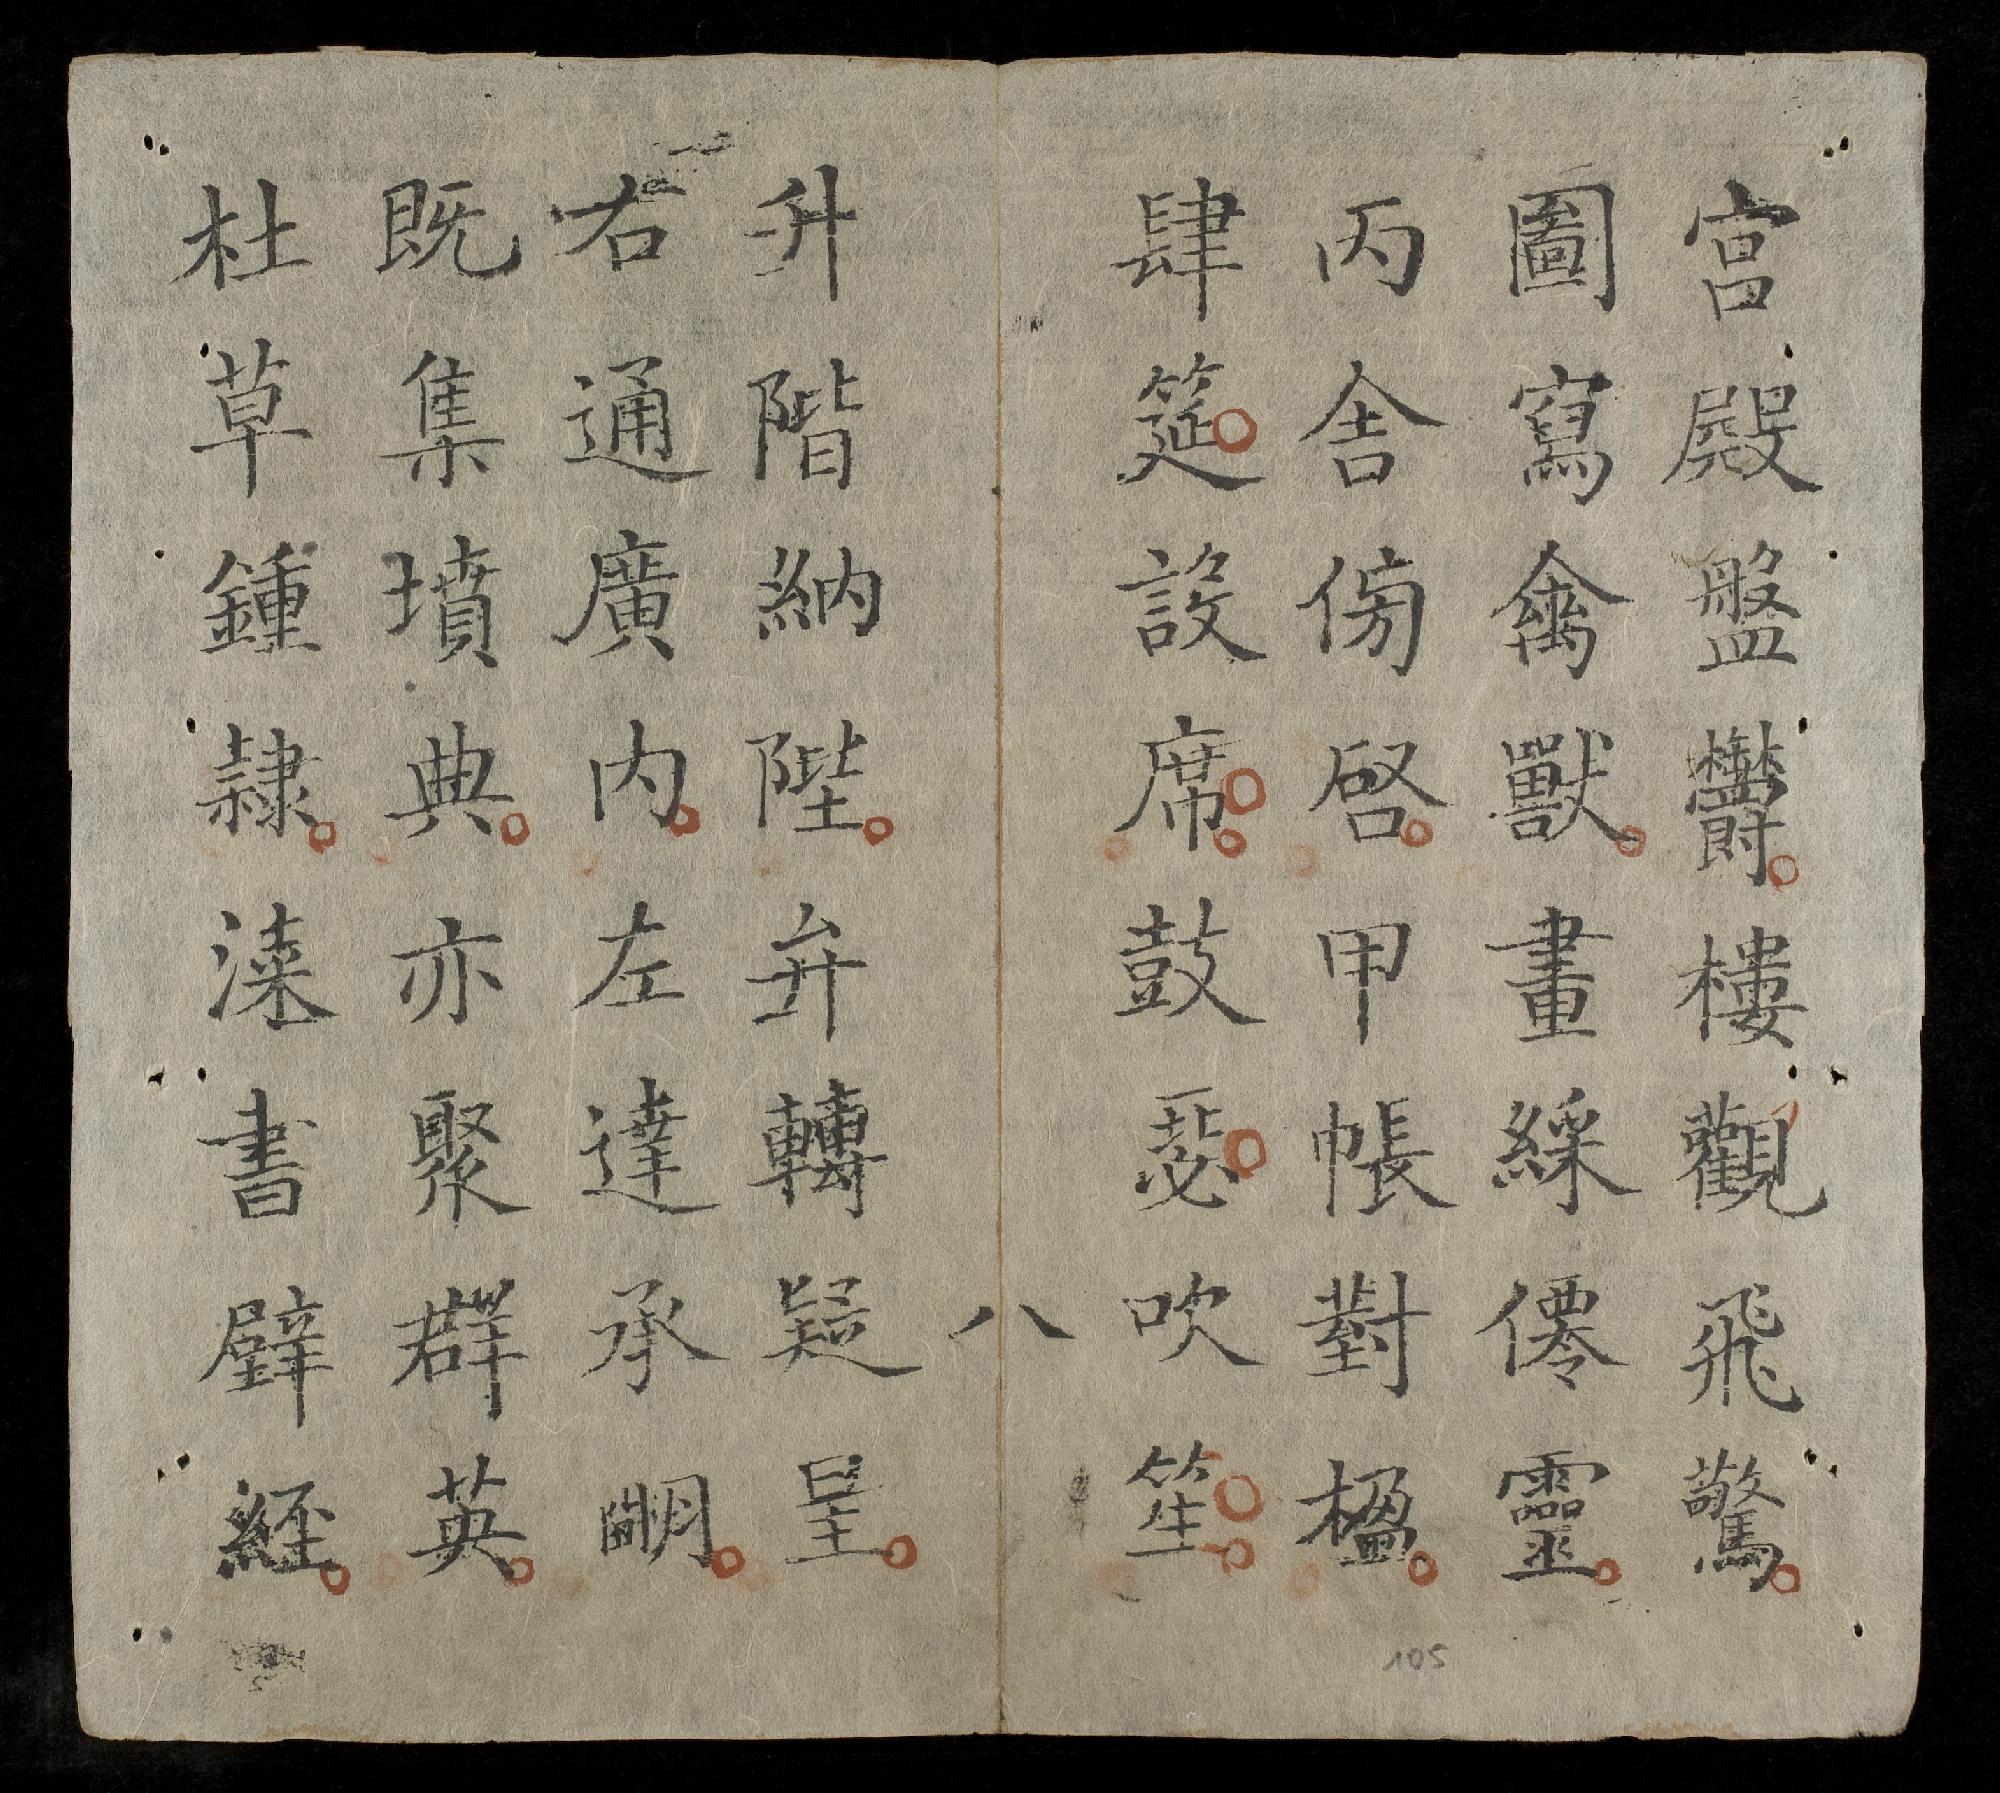 宮殿盤欝樓觀飛驚
圖寫禽獸畫綵僊靈
丙舎傍啓甲帳對楹
肆筵設席鼓瑟吹笙
八
升階納陛弁轉疑呈
右通廣内左達承明
既集墳典亦聚群英
杜草鍾隷漆書壁經
105